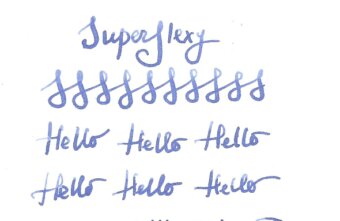 Superflexy
Hello Hello Hello
Hello Hello Hello